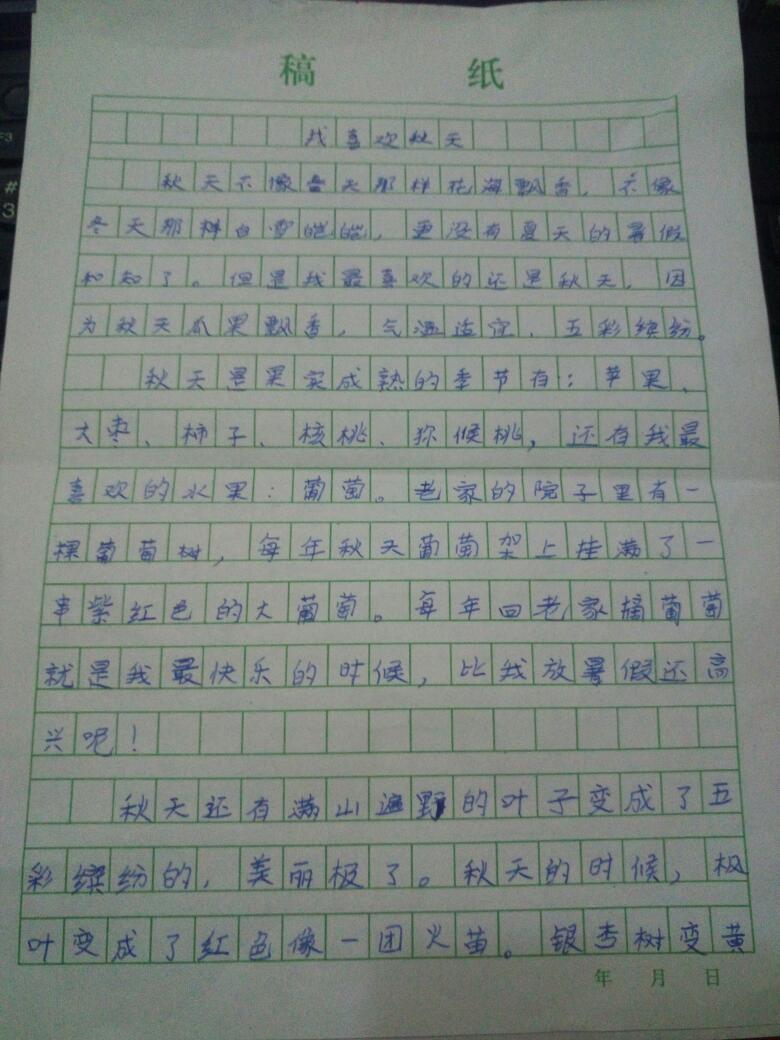 稿 纸
我喜欢秋天
秋天不像春天那样花海飘香，不像
冬天那样白雪皑皑，更没有夏天的暑假
和知了。但是我最喜欢的还是秋天，因
为秋天瓜果飘香，气温适宜，五彩缤纷。
秋天是果实成熟的季节有：苹果、
大枣、柿子、核桃、猕候桃，还有我最
喜欢的水果：葡萄。老家的院子里有一
棵葡萄树，每年秋天葡萄架上挂满了一
串紫红色的大葡萄。每年回老家摘葡萄
就是我最快乐的时候，比我放暑假还高
兴呢！
秋天还有满山遍野的叶子变成了五
彩缤纷的，美丽极了。秋天的时候，枫
叶变成了红色像一团火苗。银杏树变黄
年 月 日
# 3
F3